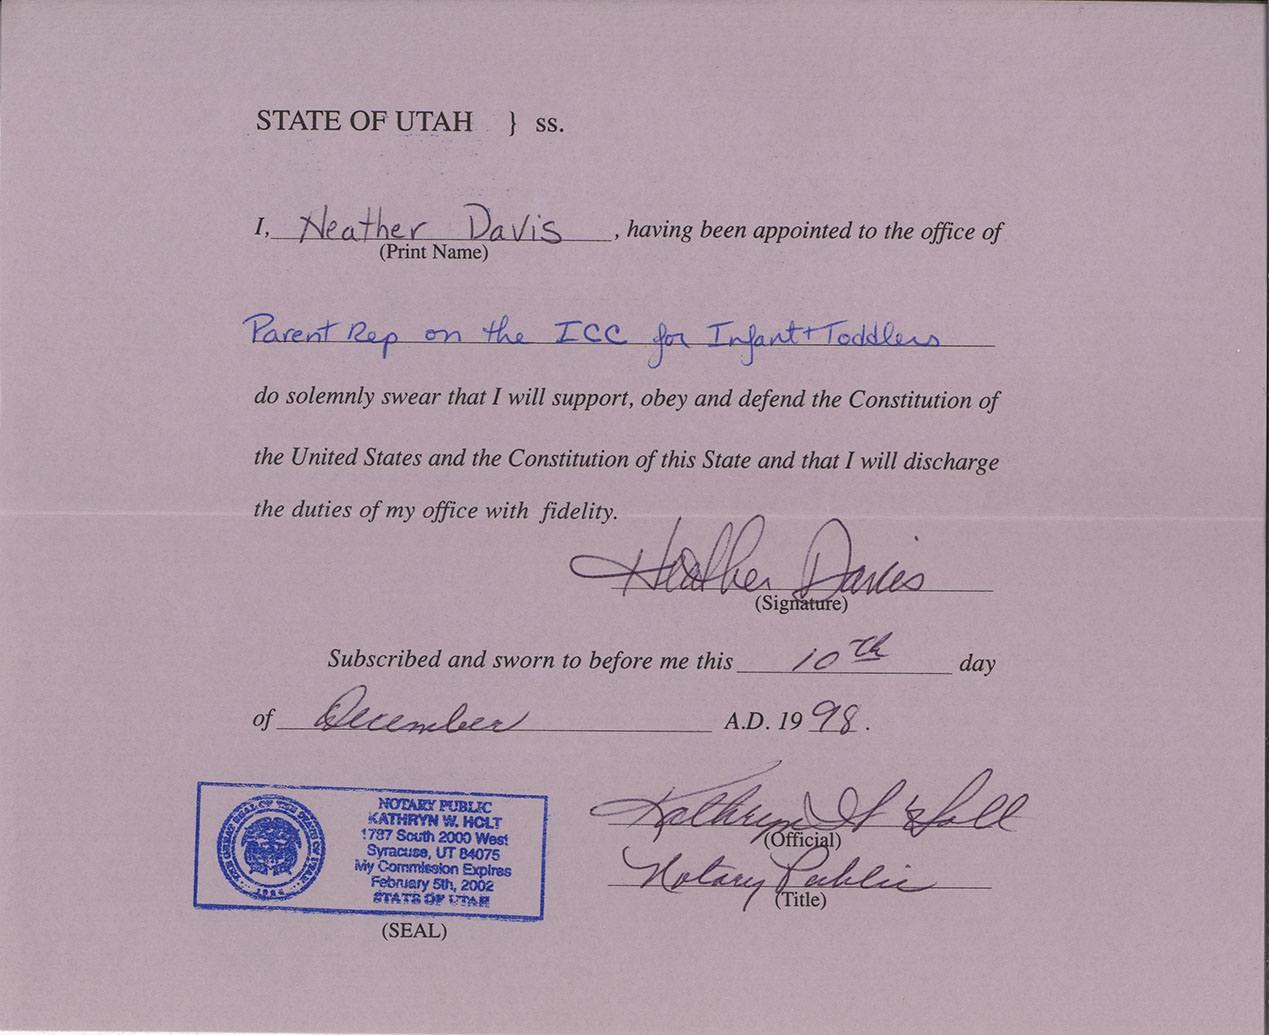 STATE OF UTAH } ss.
I, Heather Davis, having been appointed to the office of
(Print Name)
Parent Rep on the ICC for Infant + Toddlers
do solemnly swear that I will support, obey and defend the Constitution of
the United States and the Constitution of this State and that I will discharge
the duties of my office with fidelity.
Heather Davis
(Signature)
Subscribed and sworn to before me this 10th day
of December A.D. 1998.
Kathryn W Holt
(Official)
Notary Public
(Title)
THE GREAT SEAL OF THE STATE OF UTAH
1896
NOTARY PUBLIC
KATHRYN W. HOLT
1787 South 2000 West
Syracuse, UT 84075
My Commission Expires
February 5th, 2002
STATE OF UTAH
(SEAL)